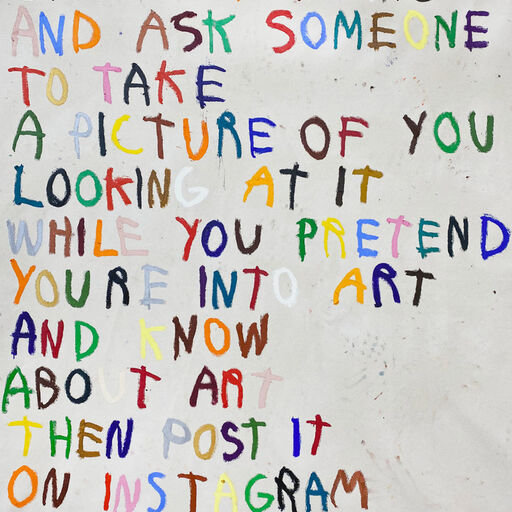 AND ASK SOMEONE
TO TAKE
A PICTURE OF YOU
LOOKING AT IT
WHILE YOU PRETEND
YOURE INTO ART
AND KNOW
ABOUT ART
THEN POST IT
ON INSTAGRAM